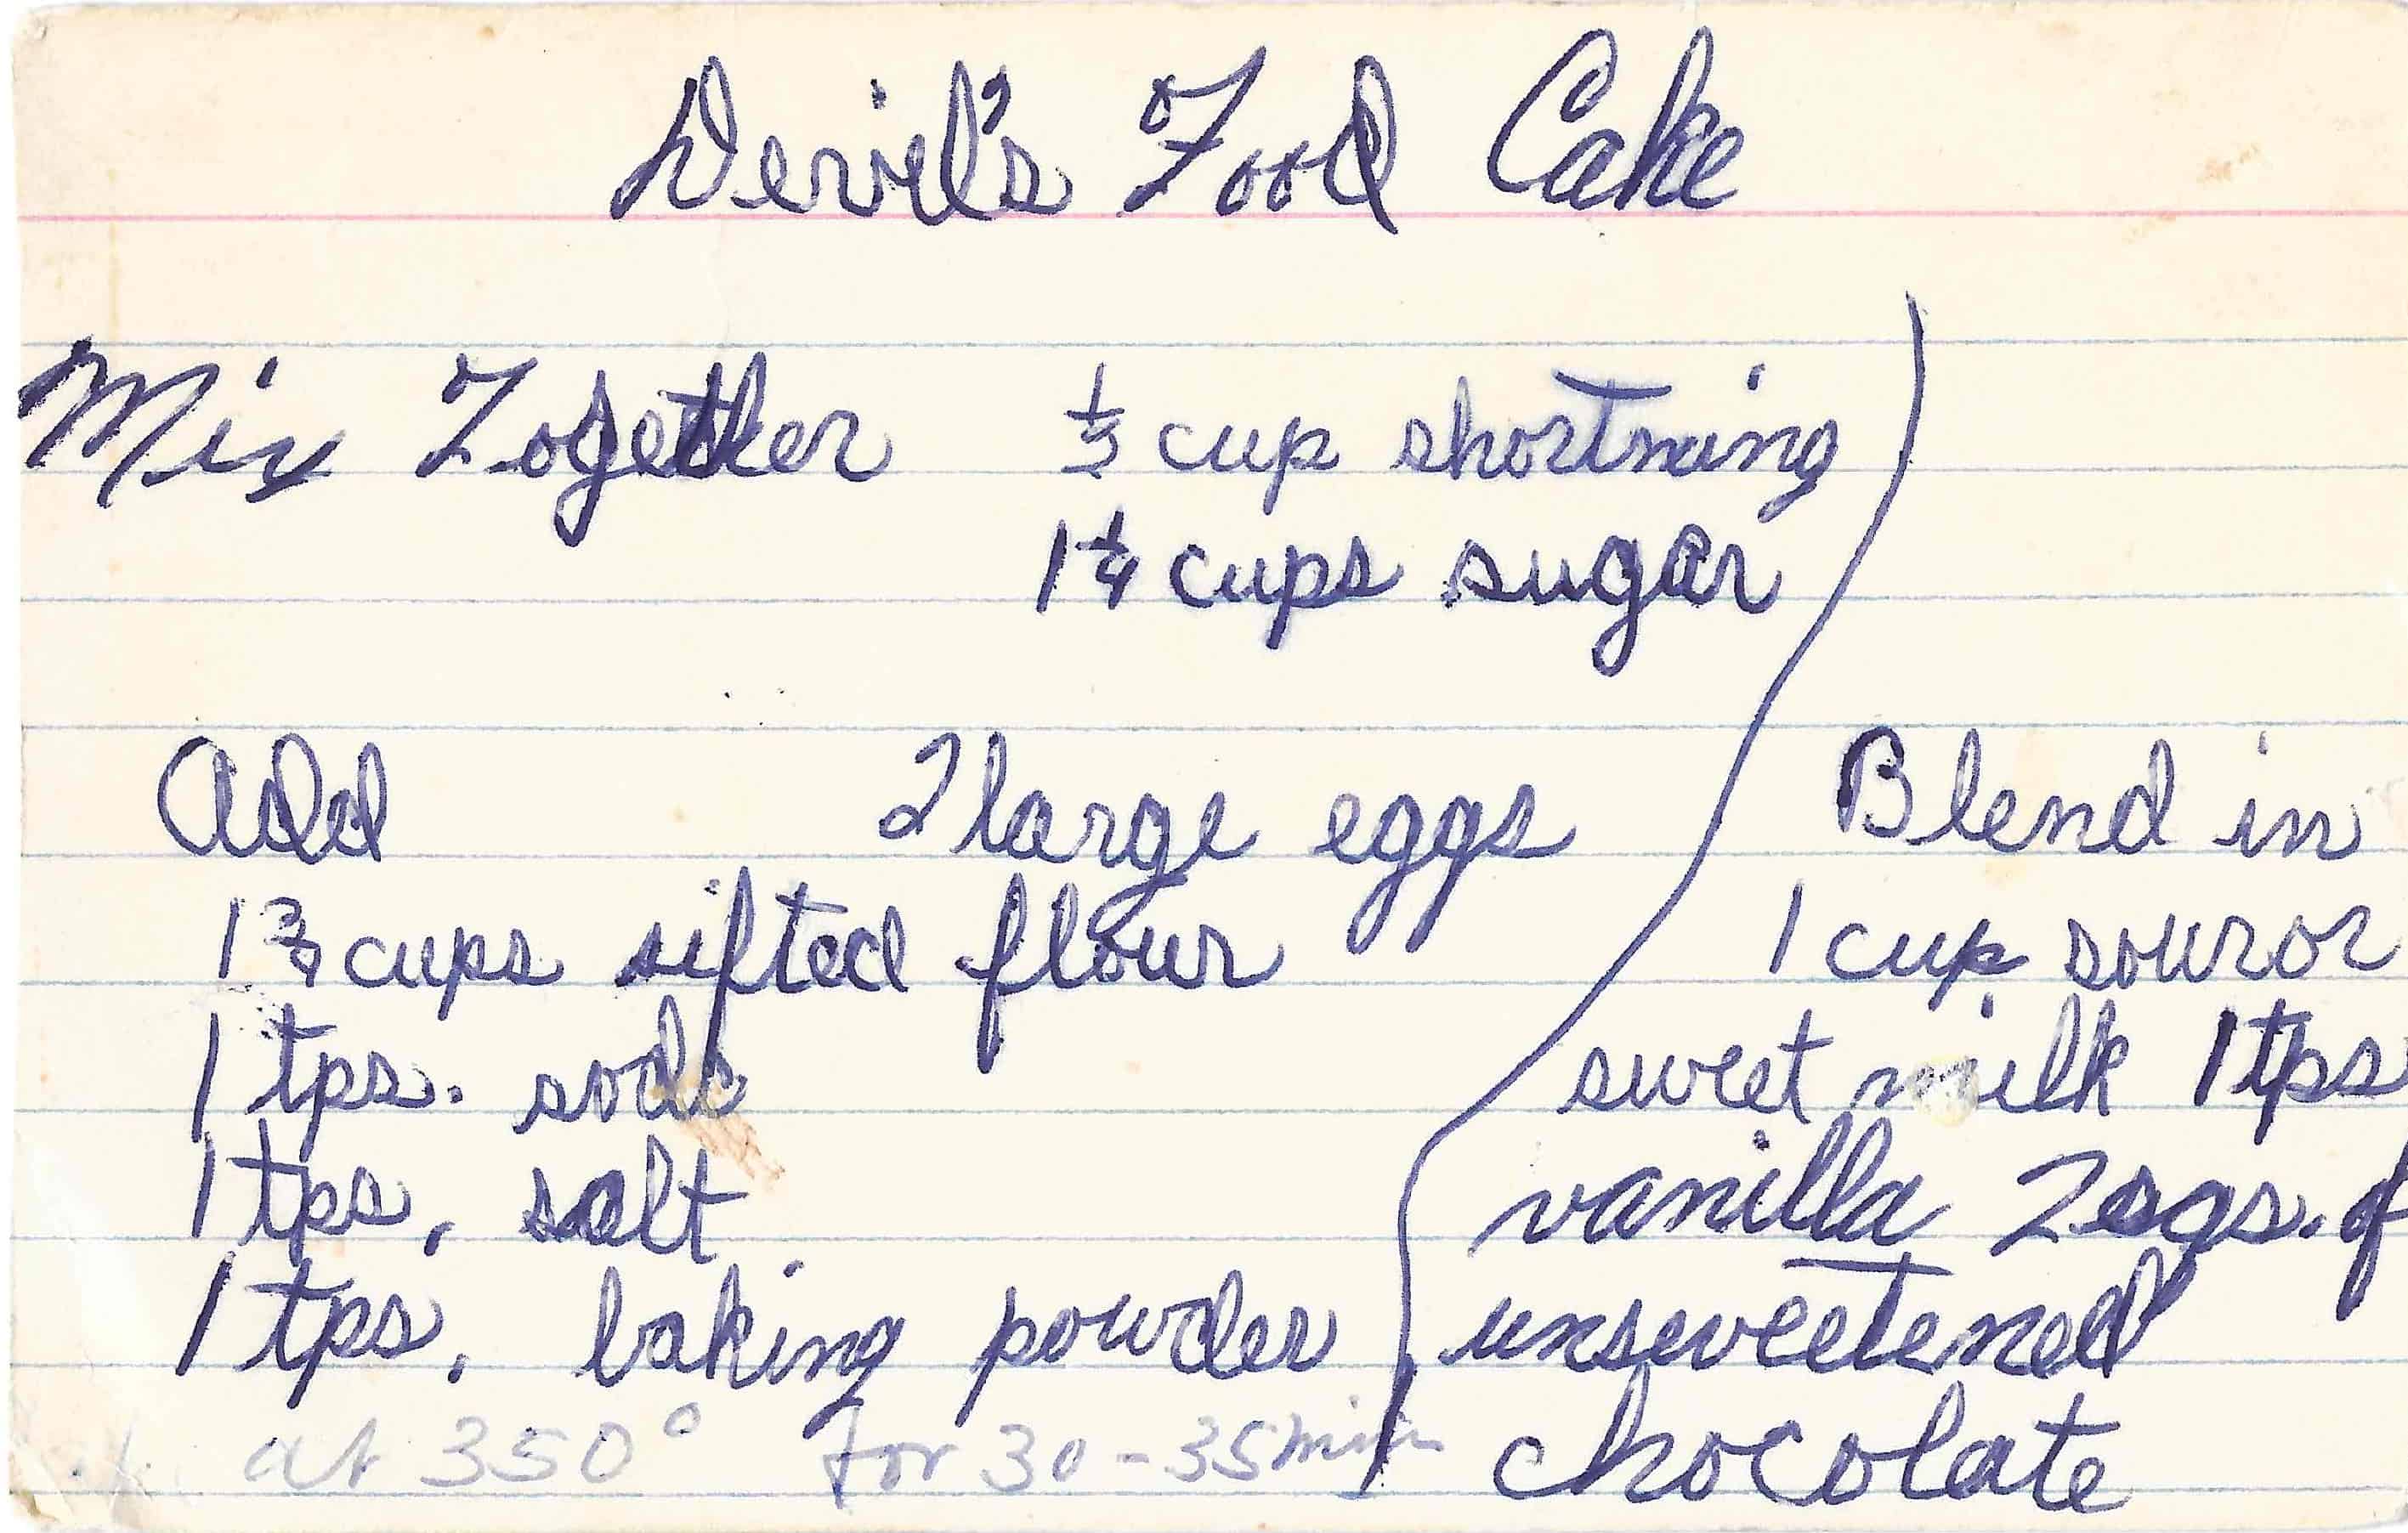 Devil's Food Cake
Mix Together 1/3 cup shortning
1 1/4 cups sugar
Add 2 large eggs
1 3/4 cups sifted flour
1 tps. soda
1 tps. salt
1 tps. baking powder
at 350° for 30-35 min
Blend in
1 cup sour or
sweet milk 1 tps
vanilla 2 sqs. of
unsweetened
chocolate